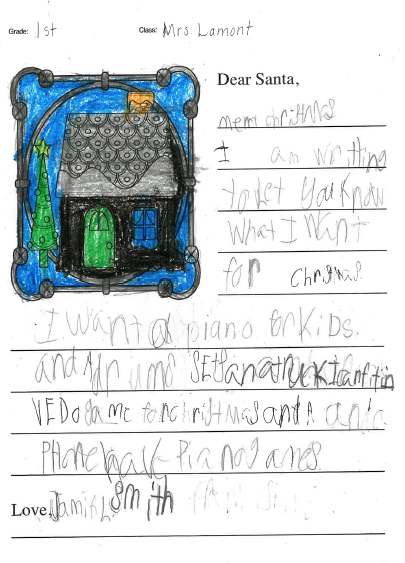 Grade: 1st Class: Mrs. Lamont
Dear Santa,
merry christmas
I am writing
to let you know
What I Want
for Christmas.
I want a piano for Kids.
and A drums SET and a truck I can fit in
VEDO game for christmas and A
Phone
Love, Jamil Smith